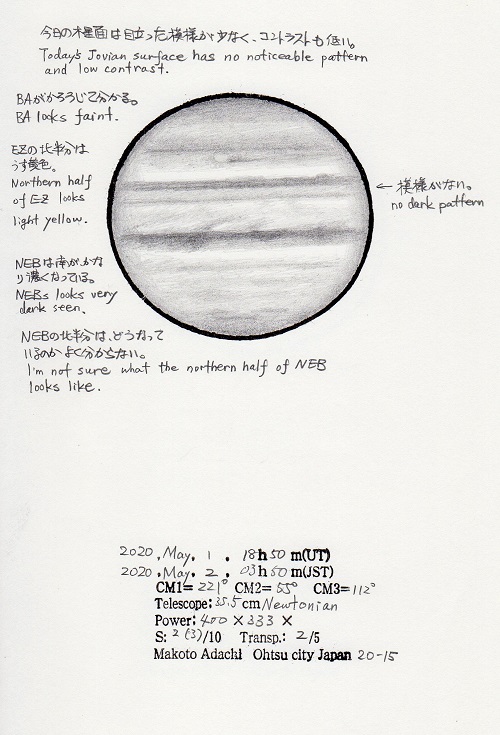 今日の木星面は目立った模様が少なく、コントラストも低い。
Today's Jovian surface has no noticeable pattern
and low contrast.
BAがかろうじて分かる。
BA looks faint.
EZの北半分は
うす黄色。
Northern half
of EZ looks
light yellow.
← 模様がない。
no dark pattern
NEBは南が、かな
り濃くなっている。
NEBs looks very
dark seen.
NEBの北半分は、どうなって
いるのかよく分からない。
I'm not sure what the northern half of NEB
looks like.
2020, May. 1. 18h50m(UT)
2020, May. 2. 03h50m(JST)
CM1=221° CM2=55° CM3=112°
Telescope: 35.5cm Newtonian
Power: 400×333×
S: 2(3)/10 Transp.: 2/5
Makoto Adachi Ohtsu city Japan 20-15